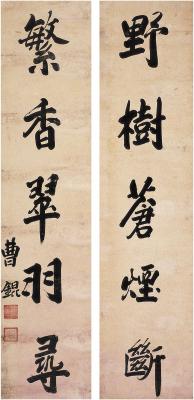 野樹蒼煙斷
繁香翠羽尋
曹錕